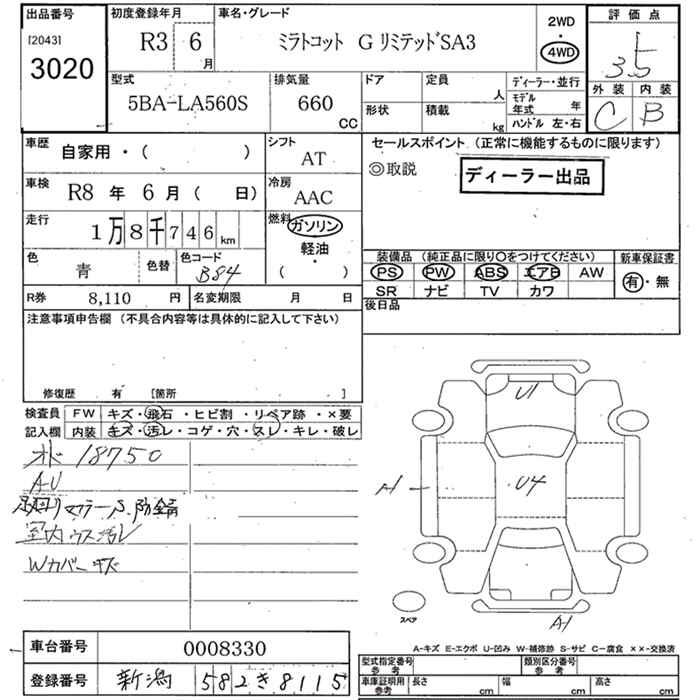 出品番号 初度登録年月 車名・グレード 2WD 評価点
[2043] R3 6月 ミラトコット G リミテッドSA3 ・ 3.5
3020 4WD
型式 排気量 ドア 定員 人 ディーラー・並行 外装 内装
5BA-LA560S 660 CC 形状 積載 kg モデル年式 年 C B
ハンドル 左・右
車歴 自家用・( ) シフト AT セールスポイント (正常に機能するものに限ります)
◎取説 ディーラー出品
車検 R8 年 6 月 ( 日) 冷房 AAC
走行 1万8千746km 燃料 ガソリン
軽油
・
( )
色 青 色替 色コード B84
装備品 (純正品に限り〇をつけてください) 新車保証書
PS PW ABS エアB AW 有・無
SR ナビ TV カワ
R券 8,110 円 名変期限 月 日 後日品
注意事項申告欄 (不具合内容等は具体的に記入して下さい)
修復歴 有 [箇所 ]
検査員 FW キズ・飛石・ヒビ割・リペア跡・×要
記入欄 内装 キズ・汚レ・コゲ・穴・スレ・キレ・破レ
18750
AU
室内ウス汚レ
Wカバーキズ
U1
A1 U4
スペア A1
A-キズ E-エクボ U-凹み W-補修跡 S-サビ C-腐食 ××-交換済
車台番号 0008330
登録番号 新潟 582き8115
型式指定番号 参考 類別区分番号 参考
車庫証明用 参考 長さ cm 幅 cm 高さ cm